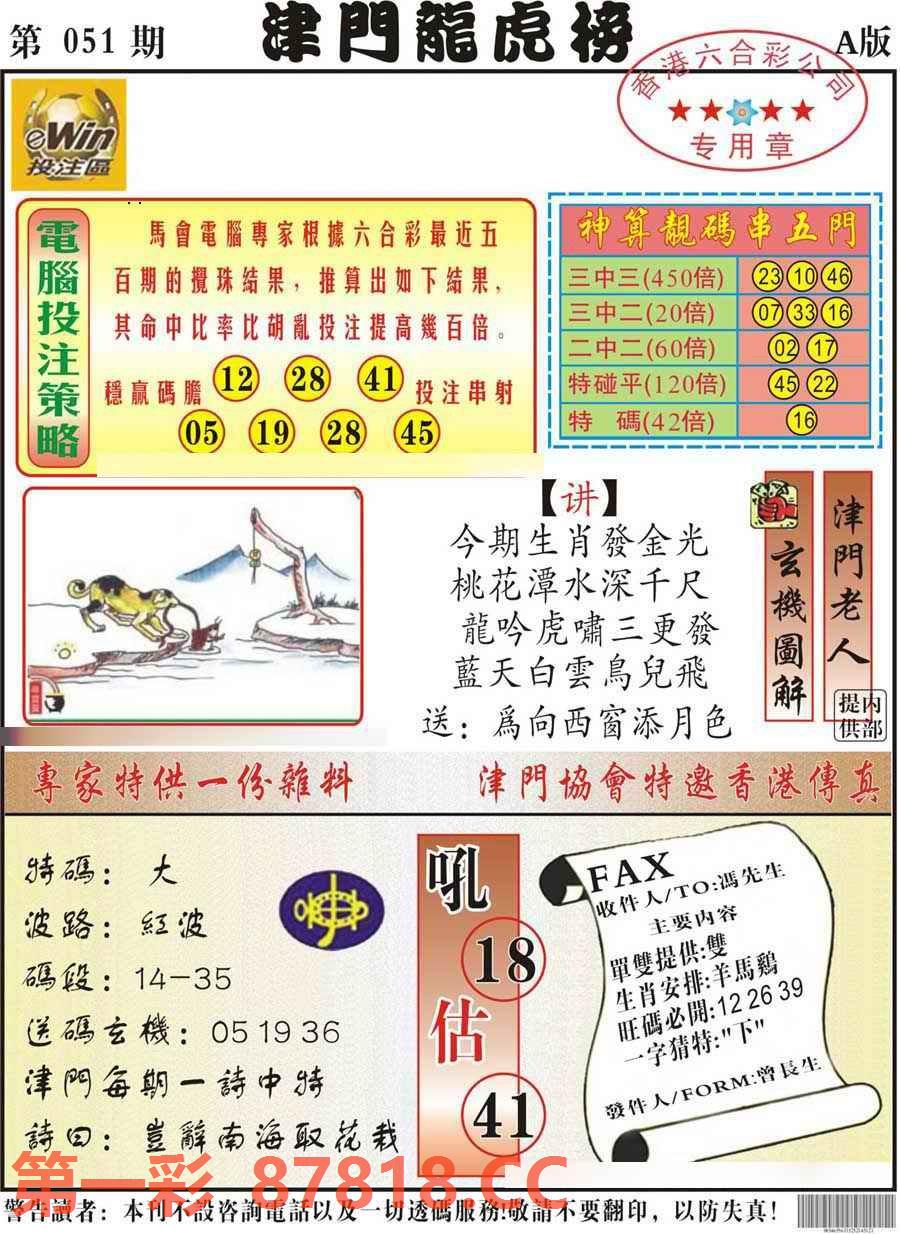 第 051 期
津門龍虎榜
A版
香港六合彩公司
专用章
eWin
投注區
電腦投注策略
馬會電腦專家根據六合彩最近五
百期的攪珠結果，推算出如下結果，
其命中比率比胡亂投注提高幾百倍。
穩贏碼膽 12 28 41 投注串射
05 19 28 45
神算靚碼串五門
三中三(450倍) 23 10 46
三中二(20倍) 07 33 16
二中二(60倍) 02 17
特碰平(120倍) 45 22
特 碼(42倍) 16
【讲】
今期生肖發金光
桃花潭水深千尺
龍吟虎嘯三更發
藍天白雲鳥兒飛
送：爲向西窗添月色
玄機圖解
津門老人
内部提供
專家特供一份雜料
津門協會特邀香港傳真
特碼：大
波路：紅波
碼段：14-35
送碼玄機：05 19 36
津門每期一詩中特
詩曰：豈辭南海取花栽
吼
18
估
41
FAX
收件人/TO:馮先生
主要内容
單雙提供:雙
生肖安排:羊馬鷄
旺碼必開:12 26 39
一字猜特:"下"
發件人/FORM:曾長生
第一彩 87818.CC
警告讀者：本刊不設咨詢電話以及一切透碼服務!敬請不要翻印，以防失真!